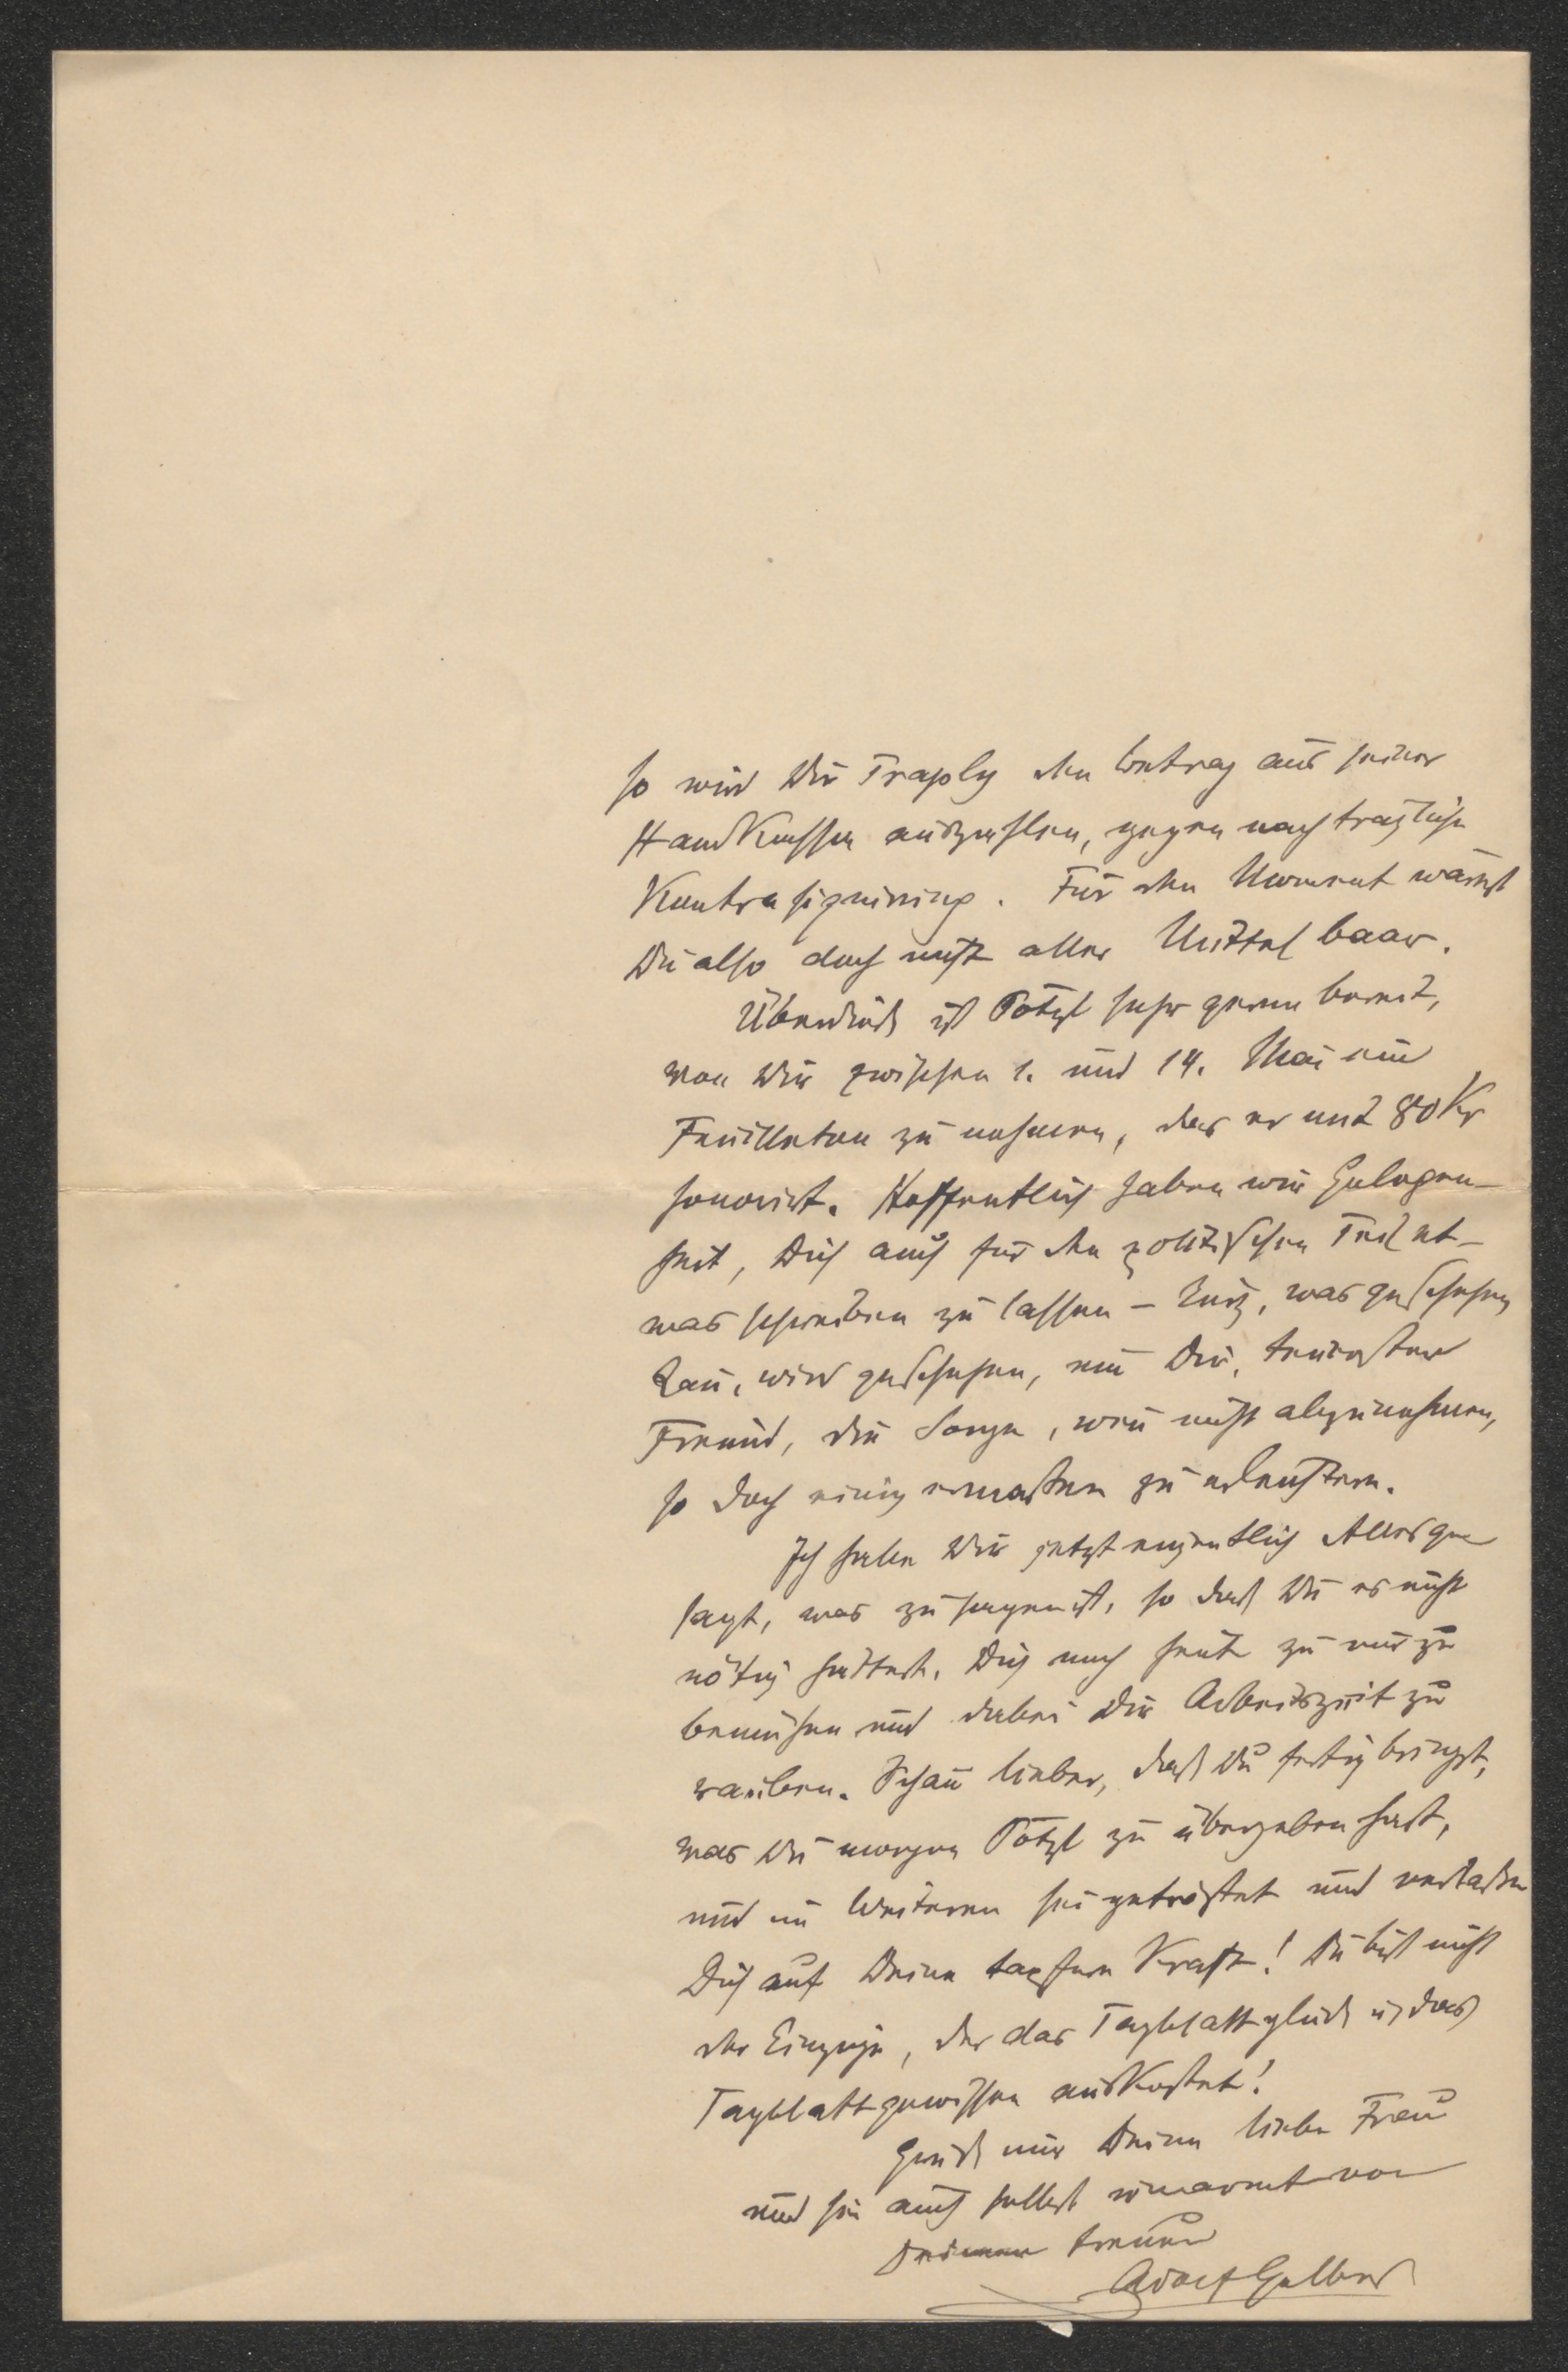 so wird Dir Traply den Betrag aus seiner
Handkassa auszahlen, gegen nachträgliche
Kontrasignirung. Für den Moment wärest
Du also doch nicht aller Mittel baar.
Überdieß ist Pötzl sehr gerne bereit,
von Dir zwischen 1. und 14. Mai ein
Feuilleton zu nehmen, das er mit 80 Kr
honorirt. Hoffentlich haben wir Gelegen-
heit, Dich auch für den politischen Teil et-
was schreiben zu lassen – kurz, was geschehen
kan, wird geschehen, um Dir, teuerster
Freund, die Sorge, wen nicht abzunehmen,
so doch einigermaßen zu erleichtern.
Ich habe Dir jetzt eigentlich Alles ge
sagt, was zu sagen ist, so daß Du es nicht
nötig hättest, Dich noch heute zu mir zu
bemühen und dabei Dir Arbeitszeit zu
rauben. Schau lieber, daß Du fertig bringst,
was Du morgen Pötzl zu übergeben hast,
und im Weiteren sei getröstet und verlaße
Dich auf Deine tapfere Kraft! Du bist nicht
der Einzige, der das Tagblattglück u. das
Tagblattgewissen auskostet!
Grüß mir Deine liebe Frau
und sei auch selbst umarmt von
Deinem treuen
Adolf Gelber